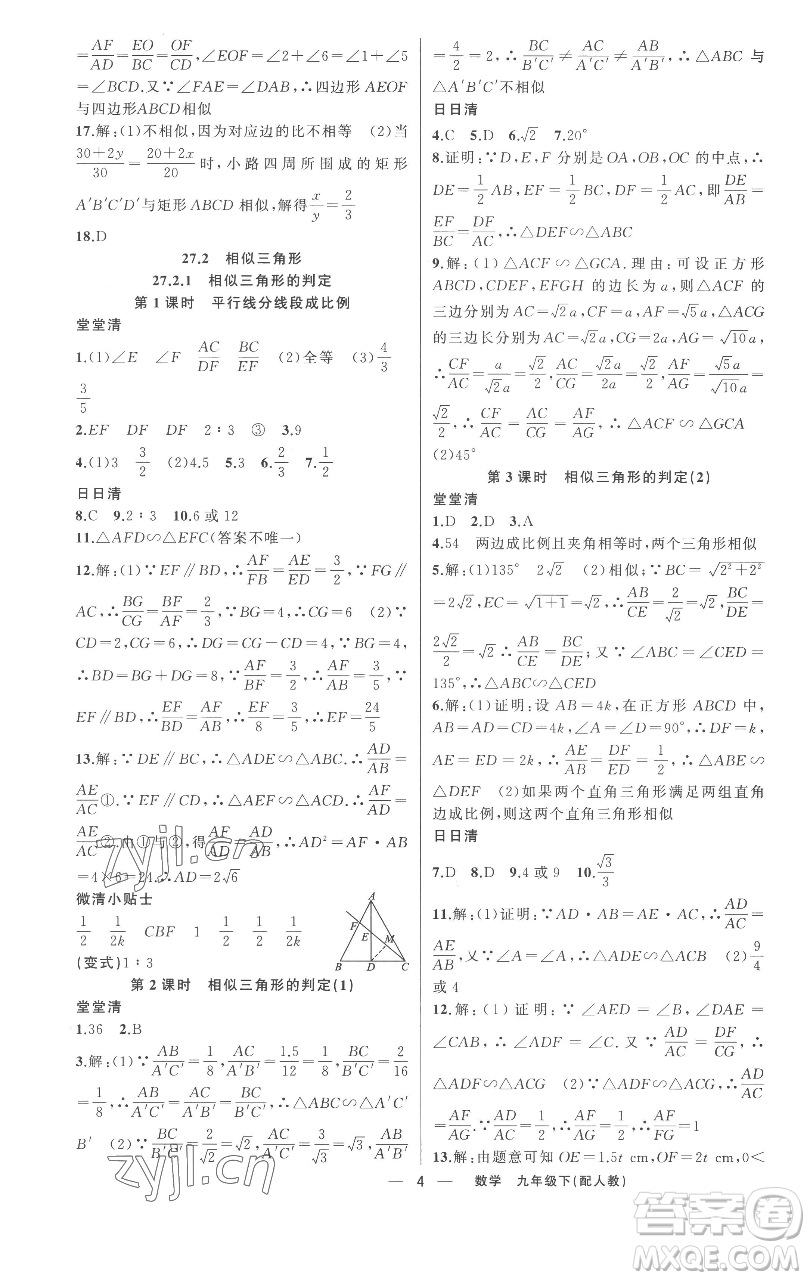 =AF/AD=EO/BC=OF/CD,∠EOF=∠2+∠6=∠1+∠5
=∠BCD.又∵∠FAE=∠DAB,∴四边形AEOF
与四边形ABCD相似
17.解:(1)不相似,因为对应边的比不相等 (2)当
(30+2y)/30=(20+2x)/20时,小路四周所围成的矩形
A′B′C′D′与矩形ABCD相似,解得x/y=2/3
18.D
27.2 相似三角形
27.2.1 相似三角形的判定
第1课时 平行线分线段成比例
堂堂清
1.(1)∠E ∠F AC/DF BC/EF (2)全等 (3)4/3
3/5
2.EF DF DF 2∶3 ③ 3.9
4.(1)3 3/2 (2)4.5 5.3 6.3/2 7.1/2
日日清
8.C 9.2∶3 10.6或12
11.△AFD∽△EFC(答案不唯一)
12.解:(1)∵EF∥BD,∴AF/FB=AE/ED=3/2,∵FG∥
AC,∴BG/CG=BF/AF=2/3,∵BG=4,∴CG=6 (2)∵
CD=2,CG=6,∴DG=CG-CD=4,∵BG=4,
∴BD=BG+DG=8,∵AF/BF=3/2,∴AF/AB=3/5,∵
EF∥BD,∴EF/BD=AF/AB,∴EF/8=3/5,∴EF=24/5
13.解:∵DE∥BC,∴△ADE∽△ABC.∴AD/AB=
AE/AC①.∵EF∥CD,∴△AEF∽△ACD.∴AF/AD=
AE/AC②.由①与②,得AF/AD=AD/AB,∴AD²=AF·AB
=4×6=24.∴AD=2√6
微清小贴士
1/2 1/2k CBF 1 1/2 1/2k
(变式)1∶3
A
F
E
M
B D C
第2课时 相似三角形的判定(1)
堂堂清
1.36 2.B
3.解:(1)∵AB/A′C′=1/8,AC/A′B′=1.5/12=1/8,BC/B′C′=2/16
=1/8,∴AB/A′C′=AC/A′B′=BC/B′C′,∴△ABC∽△A′C′
B′ (2)∵BC/B′C′=2/√2=√2,AC/A′C′=3/√3=√3,AB/A′B′=
4/2=2,∴BC/B′C′≠AC/A′C′≠AB/A′B′,∴△ABC与
△A′B′C′不相似
日日清
4.C 5.D 6.√2 7.20°
8.证明:∵D,E,F分别是OA,OB,OC的中点,∴
DE=1/2AB,EF=1/2BC,DF=1/2AC,即DE/AB=
EF/BC=DF/AC,∴△DEF∽△ABC
9.解:(1)△ACF∽△GCA.理由:可设正方形
ABCD,CDEF,EFGH的边长为a,则△ACF的
三边分别为AC=√2a,CF=a,AF=√5a,△ACG
的三边长分别为AC=√2a,CG=2a,AG=√10a,
∴CF/AC=a/√2a=√2/2,AC/CG=√2a/2a=√2/2,AF/AG=√5a/√10a=
√2/2,∴CF/AC=AC/CG=AF/AG,∴△ACF∽△GCA
(2)45°
第3课时 相似三角形的判定(2)
堂堂清
1.D 2.D 3.A
4.54 两边成比例且夹角相等时,两个三角形相似
5.解:(1)135° 2√2 (2)相似;∵BC=√(2²+2²)
=2√2,EC=√(1+1)=√2,∴AB/CE=2/√2=√2,BC/DE=
2√2/2=√2,∴AB/CE=BC/DE;又∵∠ABC=∠CED=
135°,∴△ABC∽△CED
6.解:(1)证明:设AB=4k,在正方形ABCD中,
AB=AD=CD=4k,∠A=∠D=90°,∴DF=k,
AE=ED=2k,∴AE/AB=DF/ED=1/2,∴△ABE∽
△DEF (2)如果两个直角三角形满足两组直角
边成比例,则这两个直角三角形相似
日日清
7.D 8.D 9.4或9 10.√3/3
11.解:(1)证明:∵AD·AB=AE·AC,∴AD/AC=
AE/AB,又∵∠A=∠A,∴△ADE∽△ACB (2)9/4
或4
12.解:(1)证明:∵∠AED=∠B,∠DAE=
∠CAB,∴∠ADF=∠C.又∵AD/AC=DF/CG,∴
△ADF∽△ACG (2)∵△ADF∽△ACG,∴AD/AC
=AF/AG.∵AD/AC=1/2,∴AF/AG=1/2,∴AF/FG=1
13.解:由题意可知OE=1.5t cm,OF=2t cm,0<
— 4 — 数学 九年级下(配人教)
zyjl.cn
zyjl.cn
答案圈
MXQE.COM